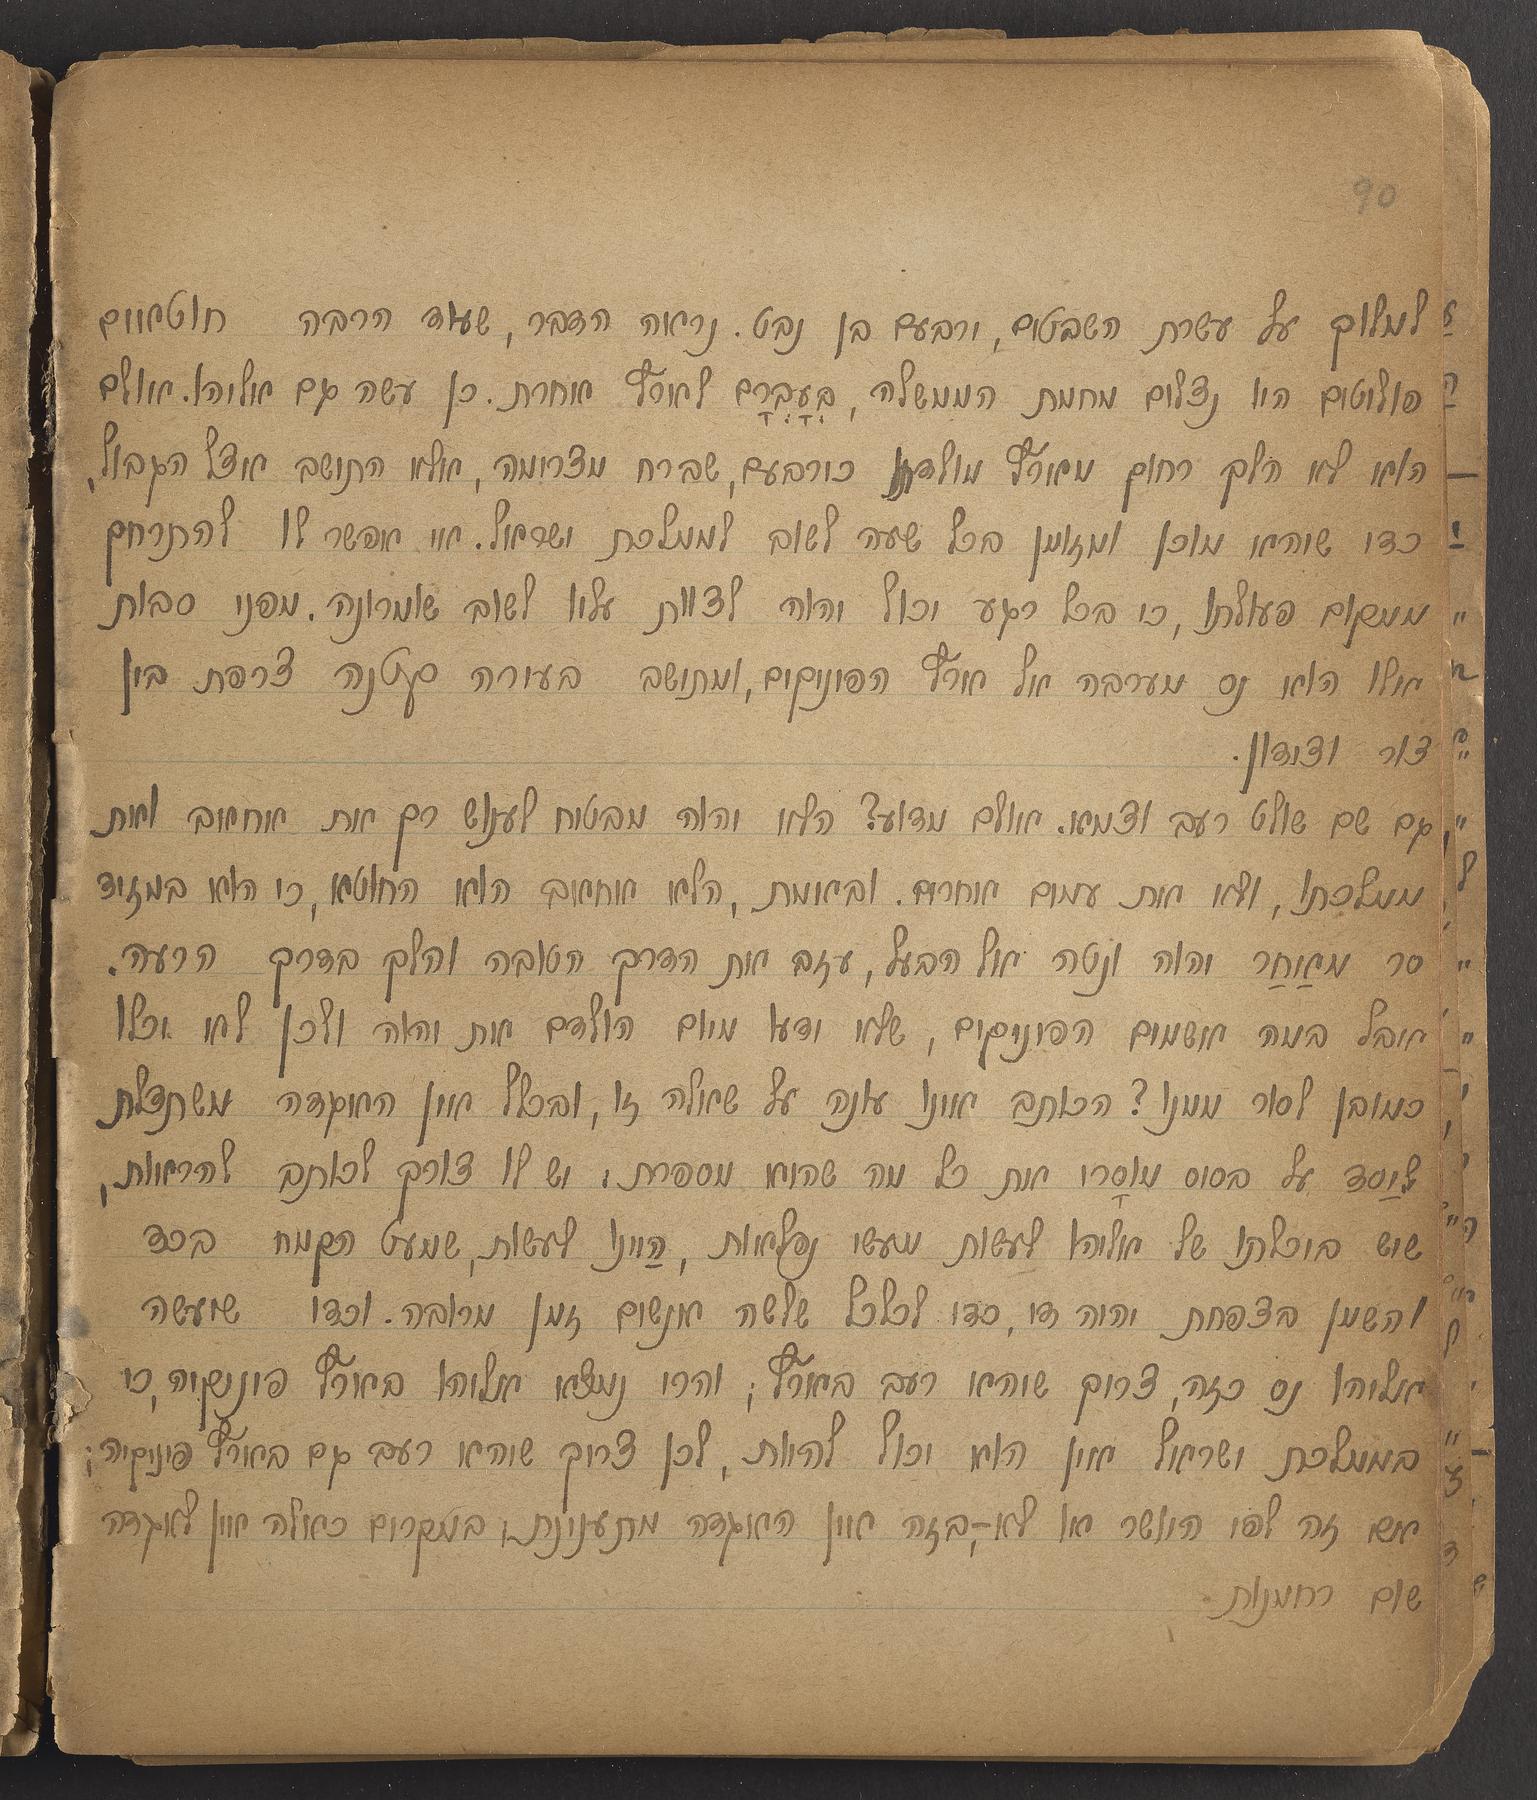 90
למלוך על עשרת השבטים, ירבעם בן נבט. נראה הדבר, שעוד הרבה חוטאיים
פוליטים היו נצלים מחמת הממשלה, בְּעָבְרָם לארץ אחרת. כן עשה גם אליהו. אולם
הוא לא הלך רחוק מארץ מולדתו כירבעם, שברח מצרימה, אלא התישב אצל הגבול,
כדי שיהיא מוכן ומזומן בכל שעה לשוב לממלכת ישראל. אי אפשר לו להתרחק
ממקום פעולתו, כי בכל רגע יכול יהוה לצוות עליו לשוב שומרונה. מפני סבות
אילו הוא נס מערבה אל ארץ הפיניקים, ומתישב בעירה קטנה צרפת בין
צור וצידון.
גם שם שולט רעב וצמא. אולם מדוע? הלא יהוה מבטיח לענוש רק את אחאב ואת
ממלכתו, ולא את עמים אחרים. ובאמת, הלא אחאב הוא החוטא, כי הוא במזיד
סר מאַחַר יהוה ונטה אל הבעל, עזב את הדרך הטובה והלך בדרך הרעה.
אבל במה אשמים הפיניקים, שלא ידעו מיום הולדם את יהוה ולכן לא יכלו
כמובן לסור ממנו? הכותב אינו עונה על שאלה זו, ובכלל אין האגדה משתדלת
ליַסד על בסיס מוסָרי את כל מה שהיא מספרת. יש לו צורך לכותב להראות,
שיש ביכלתו של אליהו לעשות מעשי נפלאות, הַיינו לעשות, שמעט הקמח בכד
והשמן בצפחת יהיה די, כדי לכלכל שלשה אנשים זמן מרובה. וכדי שיעשה
אליהו נס כזה, צריך שיהיא רעב בארץ; והרי נמצא אליהו בארץ פיניקיה, כי
בממלכת ישראל אין הוא יכול להיות, לכן צריך שיהיא רעב גם בארץ פיניקיה;
אם זה לפי היושר או לא – בזה אין האגדה מתענינת. במקרים כאלה אין לאגדה
שום רחמנות